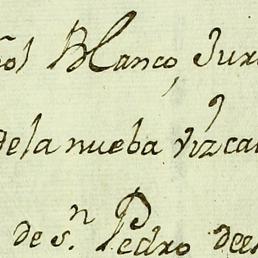 ñol Blanco, Jur
dela nueba vizca
de s.n Pedro dee